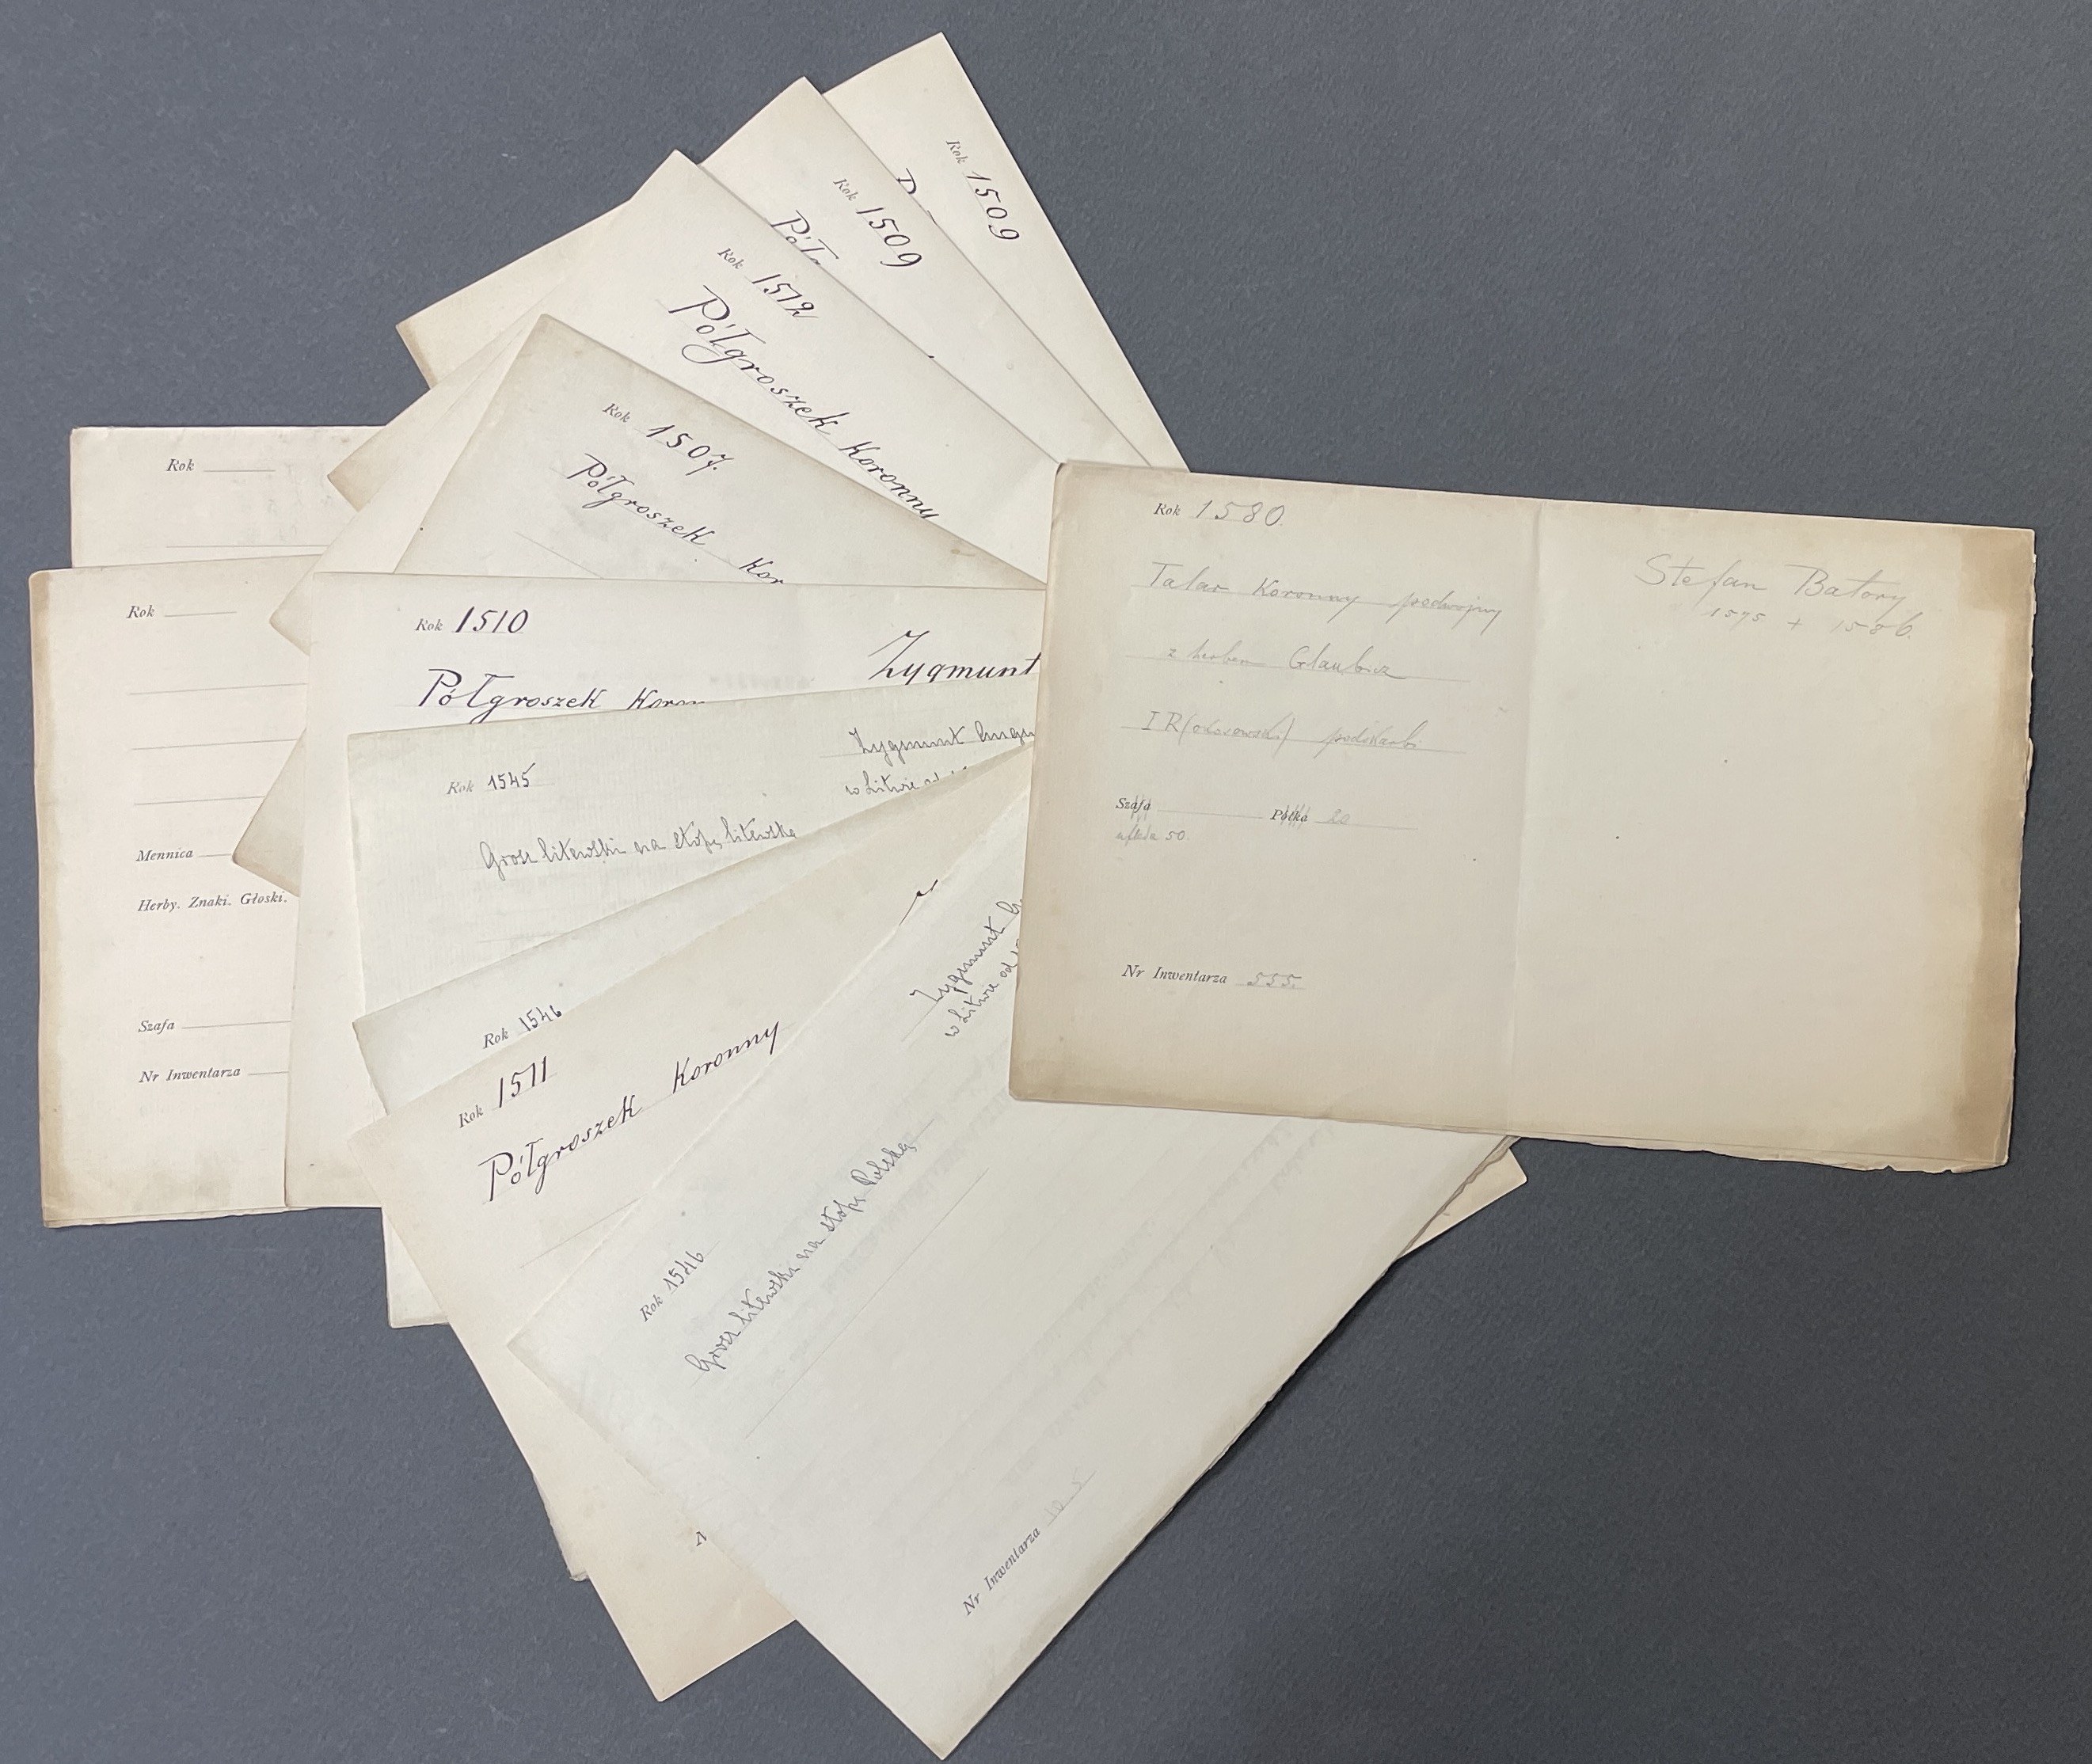 Rok 1509
Rok 1509
Rok 1512
Półgroszek Koronny
Rok 1507.
Półgroszek Kor
Rok
Rok
Mennica
Herby. Znaki. Głoski.
Szafa
Nr Inwentarza
Rok 1510
Zygmunt
Półgroszek Koron
Rok 1545
Zygmunt Augu
w Litwie od
Grosz litewski na stopę litewską
Rok 1546
Rok 1511
Półgroszek Koronny
Rok 1546
Zygmunt
w Litwie od
Grosz litewski na stopę Polską
Nr Inwentarza
Rok 1580
Talar Koronny podwójny
z herbem Glaubicz
I R(okosowski) podskarbi
Szafa Półka 20
50
Nr Inwentarza 555.
Stefan Batory
1575 + 1586.